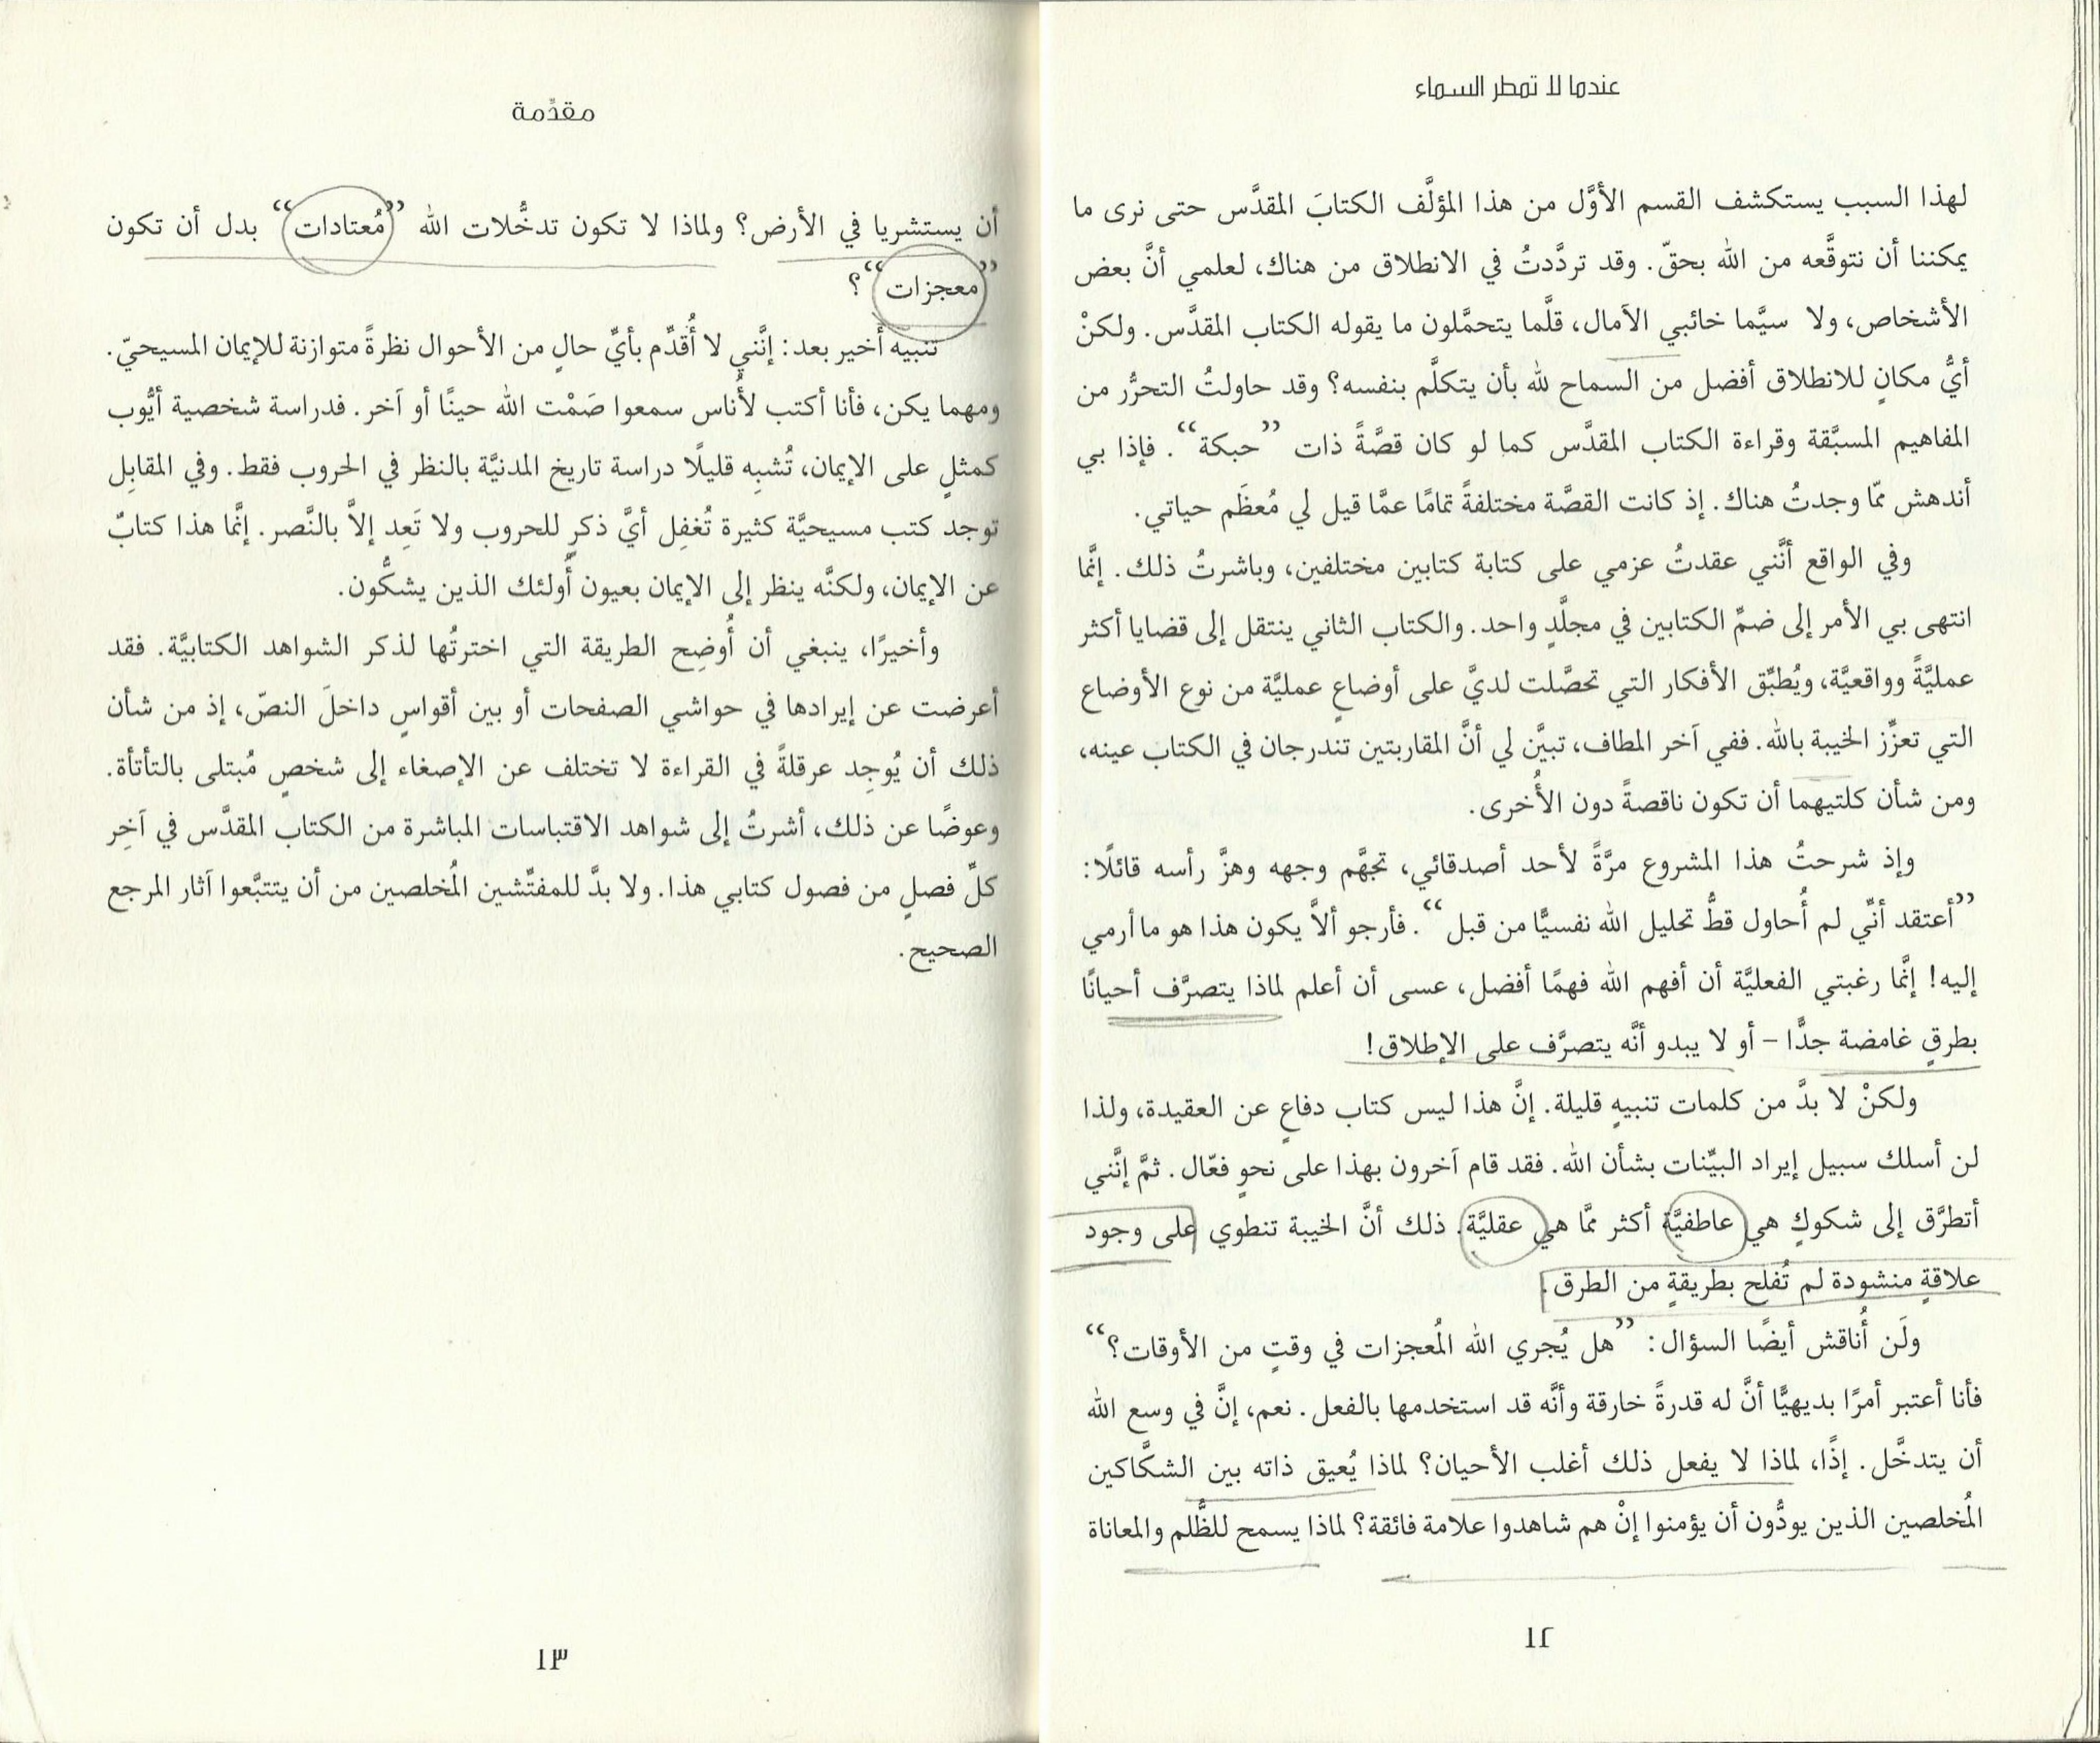 عندما لا تمطر السماء
لهذا السبب يستكشف القسم الأوَّل من هذا المؤلَّف الكتابَ المقدَّس حتى نرى ما
يمكننا أن نتوقَّعه من الله بحقّ. وقد تردَّدتُ في الانطلاق من هناك، لعلمي أنَّ بعض
الأشخاص، ولا سيَّما خائبي الآمال، قلَّما يتحمَّلون ما يقوله الكتاب المقدَّس. ولكنْ
أيُّ مكانٍ للانطلاق أفضل من السماح لله بأن يتكلَّم بنفسه؟ وقد حاولتُ التحرُّر من
المفاهيم المسبَّقة وقراءة الكتاب المقدَّس كما لو كان قصَّةً ذات ”حبكة“. فإذا بي
أندهش ممّا وجدتُ هناك. إذ كانت القصَّة مختلفةً تمامًا عمَّا قيل لي مُعظَم حياتي.
وفي الواقع أنَّني عقدتُ عزمي على كتابة كتابين مختلفين، وباشرتُ ذلك. إنَّما
انتهى بي الأمر إلى ضمِّ الكتابين في مجلَّدٍ واحد. والكتاب الثاني ينتقل إلى قضايا أكثر
عمليَّةً وواقعيَّة، ويُطبِّق الأفكار التي تحصَّلت لديَّ على أوضاعٍ عمليَّة من نوع الأوضاع
التي تعزِّز الخيبة بالله. ففي آخر المطاف، تبيَّن لي أنَّ المقاربتين تندرجان في الكتاب عينه،
ومن شأن كلتيهما أن تكون ناقصةً دون الأُخرى.
وإذ شرحتُ هذا المشروع مرَّةً لأحد أصدقائي، تجهَّم وجهه وهزَّ رأسه قائلًا:
”أعتقد أنّي لم أُحاول قطُّ تحليل الله نفسيًّا من قبل“. فأرجو ألاَّ يكون هذا هو ما أرمي
إليه! إنَّما رغبتي الفعليَّة أن أفهم الله فهمًا أفضل، عسى أن أعلم لماذا يتصرَّف أحيانًا
بطرقٍ غامضة جدًّا – أو لا يبدو أنَّه يتصرَّف على الإطلاق!
ولكنْ لا بدَّ من كلمات تنبيهٍ قليلة. إنَّ هذا ليس كتاب دفاعٍ عن العقيدة، ولذا
لن أسلك سبيل إيراد البيِّنات بشأن الله. فقد قام آخرون بهذا على نحوٍ فعّال. ثمَّ إنَّني
أتطرَّق إلى شكوكٍ هي عاطفيَّة أكثر ممَّا هي عقليَّة. ذلك أنَّ الخيبة تنطوي على وجود
علاقةٍ منشودة لم تُفلح بطريقةٍ من الطرق.
ولَن أُناقش أيضًا السؤال: ”هل يُجري الله المُعجزات في وقتٍ من الأوقات؟“
فأنا أعتبر أمرًا بديهيًّا أنَّ له قدرةً خارقة وأنَّه قد استخدمها بالفعل. نعم، إنَّ في وسع الله
أن يتدخَّل. إذًا، لماذا لا يفعل ذلك أغلب الأحيان؟ لماذا يُعيق ذاته بين الشكَّاكين
المُخلصين الذين يودُّون أن يؤمنوا إنْ هم شاهدوا علامة فائقة؟ لماذا يسمح للظُّلم والمعاناة
١٢
مقدِّمة
أن يستشريا في الأرض؟ ولماذا لا تكون تدخُّلات الله ”مُعتادات“ بدل أن تكون
”معجزات“؟
تنبيه أخير بعد: إنَّني لا أُقدِّم بأيِّ حالٍ من الأحوال نظرةً متوازنة للإيمان المسيحيّ.
ومهما يكن، فأنا أكتب لأُناس سمعوا صَمْت الله حينًا أو آخر. فدراسة شخصية أيُّوب
كمثلٍ على الإيمان، تُشبِه قليلًا دراسة تاريخ المدنيَّة بالنظر في الحروب فقط. وفي المقابِل
توجد كتب مسيحيَّة كثيرة تُغفِل أيَّ ذكرٍ للحروب ولا تَعِد إلاَّ بالنَّصر. إنَّما هذا كتابٌ
عن الإيمان، ولكنَّه ينظر إلى الإيمان بعيون أُولئك الذين يشكُّون.
وأخيرًا، ينبغي أن أُوضِح الطريقة التي اخترتُها لذكر الشواهد الكتابيَّة. فقد
أعرضت عن إيرادها في حواشي الصفحات أو بين أقواسٍ داخلَ النصّ، إذ من شأن
ذلك أن يُوجِد عرقلةً في القراءة لا تختلف عن الإصغاء إلى شخصٍ مُبتلى بالتأتأة.
وعوضًا عن ذلك، أشرتُ إلى شواهد الاقتباسات المباشرة من الكتاب المقدَّس في آخِر
كلِّ فصلٍ من فصول كتابي هذا. ولا بدَّ للمفتّشين المُخلصين من أن يتتبَّعوا آثار المرجع
الصحيح.
١٣